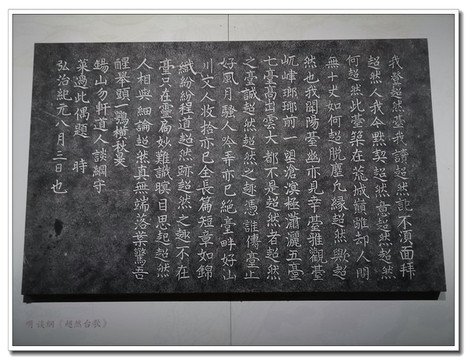 我登超然臺我讀超然記不須面拜
超然人我今默契超然意超然超然
何超然此臺築在荒城巔離却人間
無十丈如何超脱塵凡緣超然興超
然也我開陽臺幽亦見辛臺雅觀臺
屼嵂瑯琊前一望滄溟極瀟灑五臺
七臺高出雲大都不是超然者超然
之臺誠超然超然之趣憑誰傳臺上
好風月騷人吟弄亦已絶臺畔好山
川文人收拾亦已全長篇短章如錦
織紛紛程道超然跡超然之趣不在
臺只在靈扃妙難識瞑目思起超然
人相與細論超然真無端落葉驚吾
醒舉頭一鶚横秋旻
錫山勿軒道人談綱守
萊過此偶題 時
弘治紀元八月三日也
明 談綱《超然台歌》